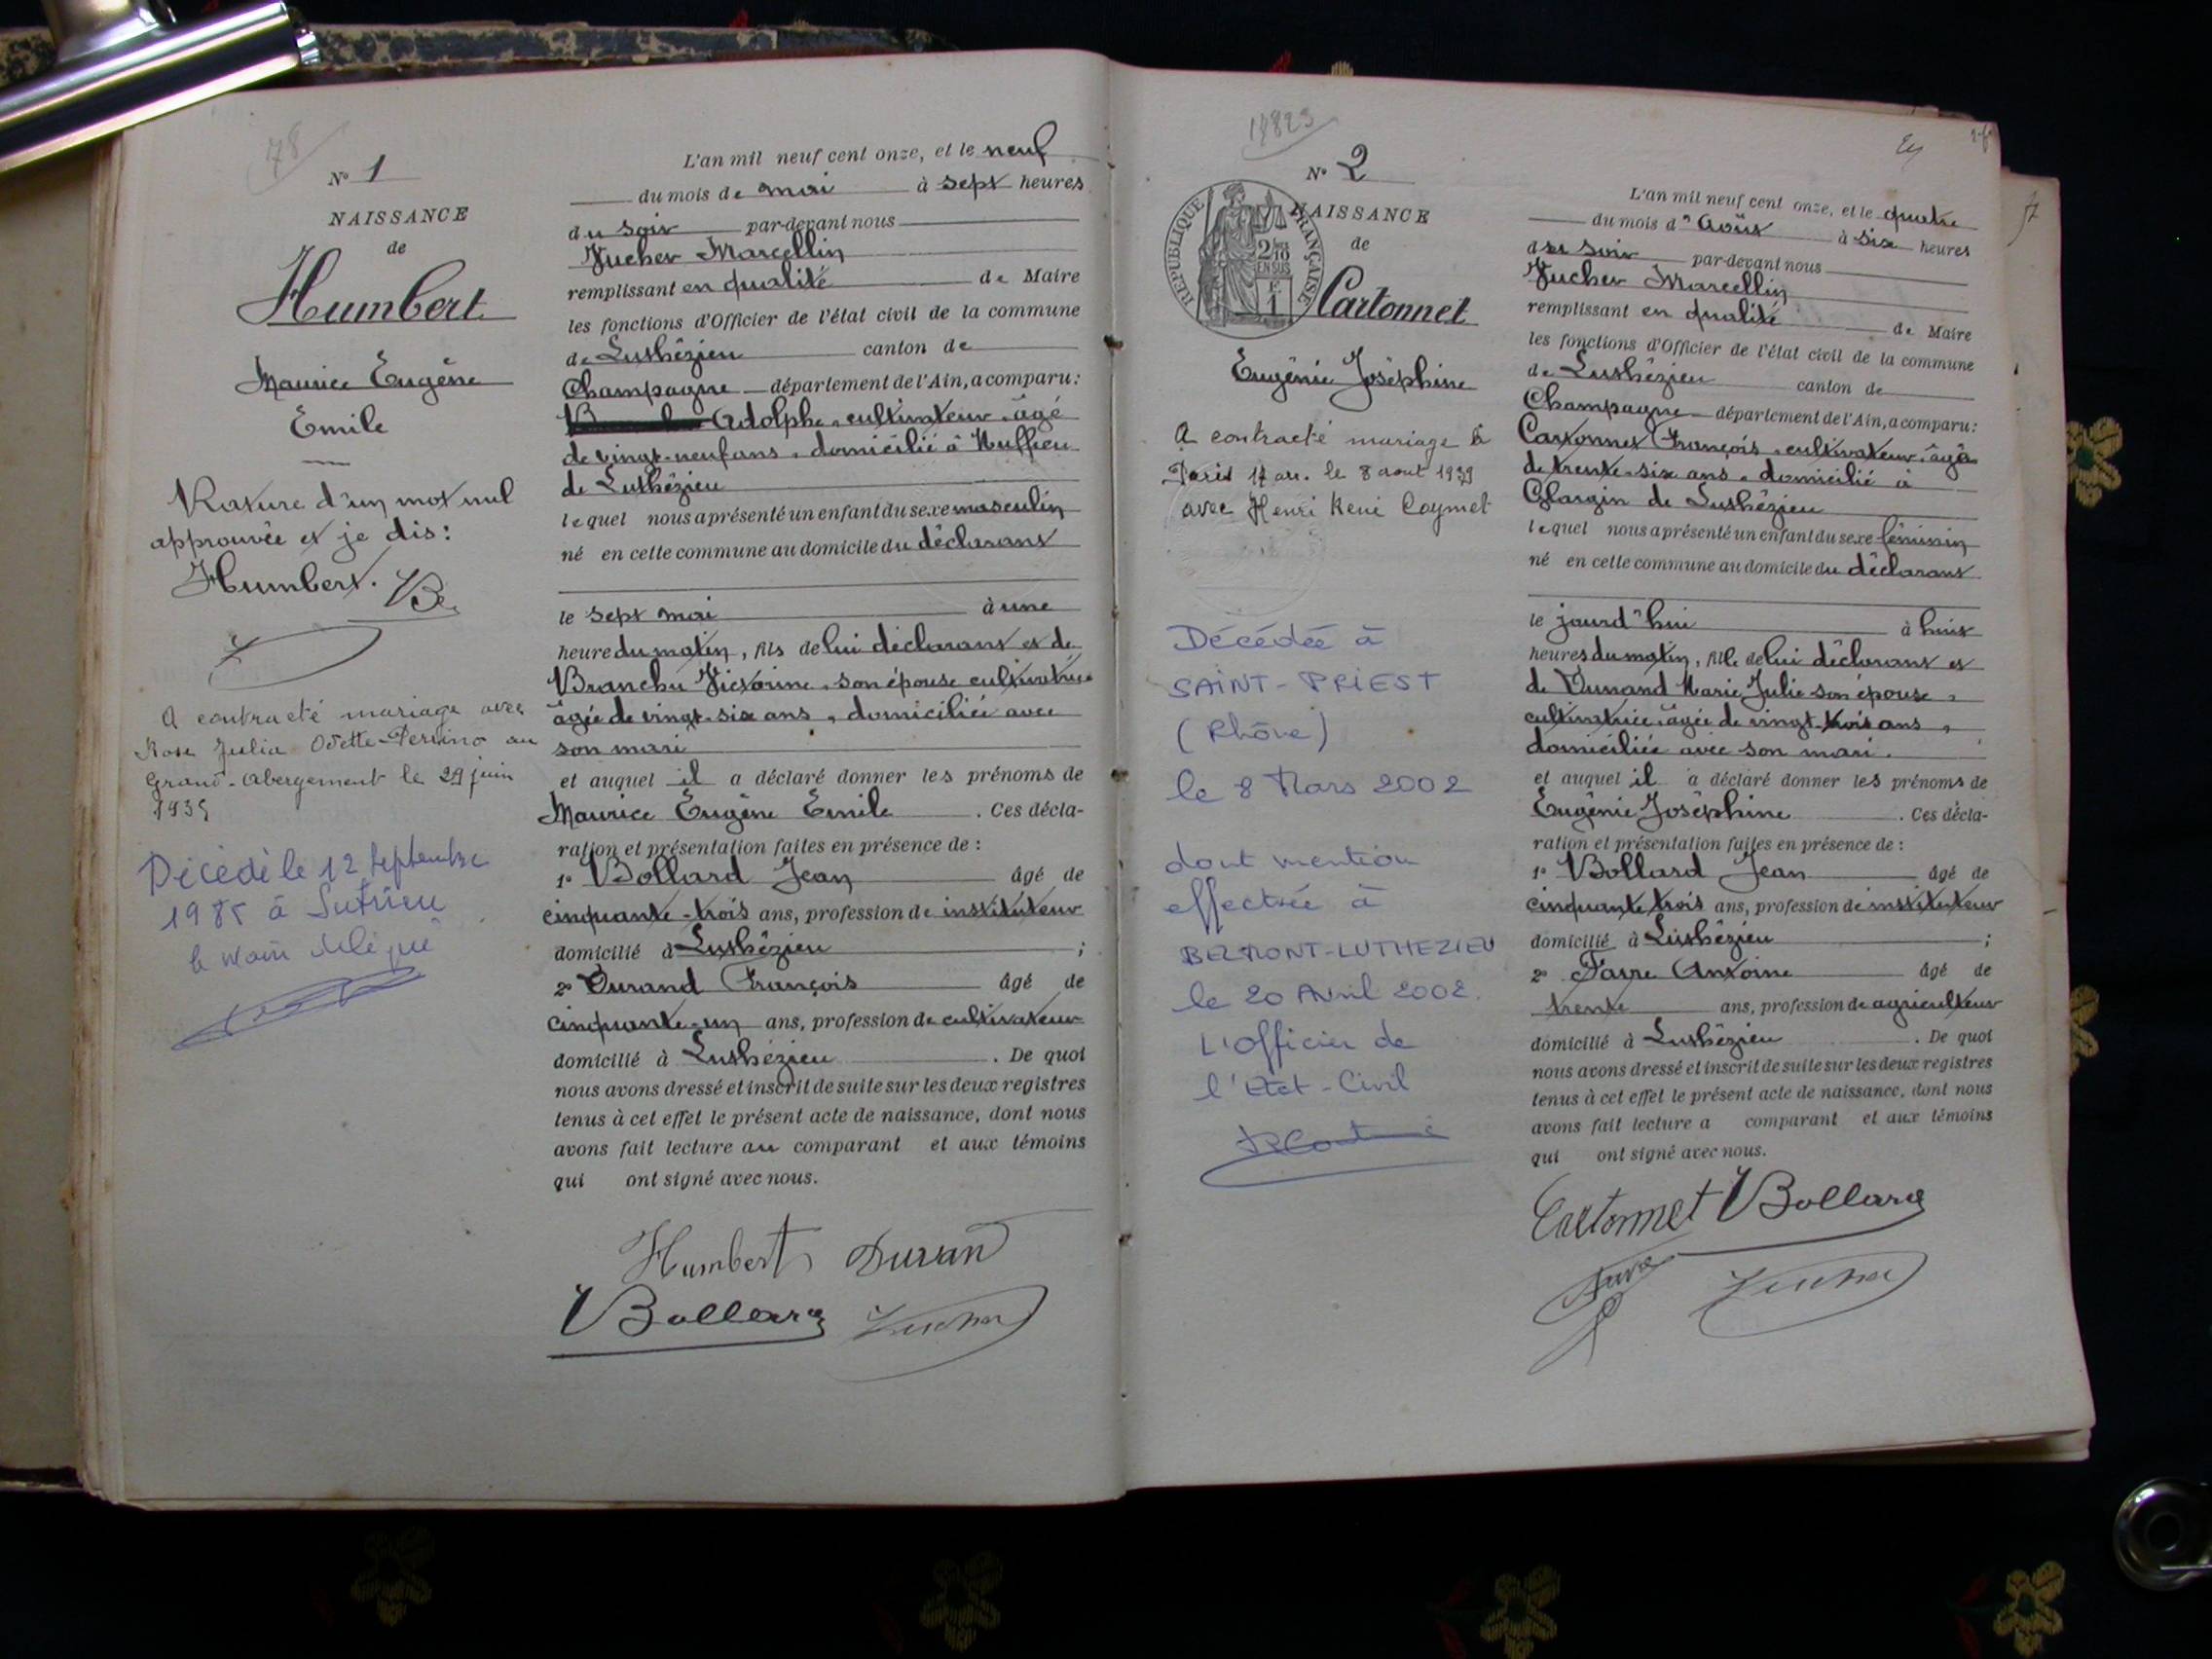 78
N° 1
NAISSANCE
de
Humbert
Maurice Eugène
Emile
Rature d'un mot nul
approuvée et je dis:
Humbert.
A contracté mariage avec
Rose Julia Odette
Grand-Abergement le 29 juin
1935
Décédé le 12 Septembre
198 à Sutrieu
le maire délégué
L'an mil neuf cent onze, et le neuf
du mois de mai à sept heures
du soir par-devant nous
Jucher Marcellin
remplissant en qualité de Maire
les fonctions d'Officier de l'état civil de la commune
de Luthézieu canton de
Champagne département de l'Ain, a comparu:
Adolphe, cultivateur, âgé
de vingt-neuf ans, domicilié à
de Luthézieu
lequel nous a présenté un enfant du sexe masculin
né en cette commune au domicile du déclarant
le sept mai à une
heure du matin, fils de lui déclarant et de
Branchu Victorine, son épouse cultivatrice
âgée de vingt-six ans, domiciliée avec
son mari
et auquel il a déclaré donner les prénoms de
Maurice Eugène Emile. Ces décla-
ration et présentation faites en présence de :
1° Bollard Jean âgé de
cinquante-trois ans, profession de instituteur
domicilié à Luthézieu ;
2° Durand François âgé de
cinquante-un ans, profession de cultivateur
domicilié à Luthézieu. De quoi
nous avons dressé et inscrit de suite sur les deux registres
tenus à cet effet le présent acte de naissance, dont nous
avons fait lecture au comparant et aux témoins
qui ont signé avec nous.
Humbert Duran
Bollard Jucher
N° 2
RÉPUBLIQUE FRANÇAISE
2/10
EN SUS
NAISSANCE
de
Cartonnet
Eugénie Joséphine
A contracté mariage à
Paris 17 arr. le 8 août 1939
avec Henri René Coymet
Décédée à
SAINT-PRIEST
(Rhône)
le 8 Mars 2002
dont mention
effectuée à
BELMONT-LUTHEZIEU
le 20 Avril 2002.
L'officier de
l'Etat-Civil
L'an mil neuf cent onze, et le quatre
du mois d'Août à six heures
du soir par-devant nous
Jucher Marcellin
remplissant en qualité de Maire
les fonctions d'Officier de l'état civil de la commune
de Luthézieu canton de
Champagne département de l'Ain, a comparu:
Cartonnet François, cultivateur, âgé
de trente-six ans, domicilié à
Glargin de Luthézieu
lequel nous a présenté un enfant du sexe féminin
né en cette commune au domicile du déclarant
le jourd'hui à huit
heures du matin, fille de lui déclarant et
de Dunand Marie Julie son épouse,
cultivatrice, âgée de vingt-trois ans,
domiciliée avec son mari.
et auquel il a déclaré donner les prénoms de
Eugénie Joséphine. Ces décla-
ration et présentation faites en présence de :
1° Bollard Jean âgé de
cinquante trois ans, profession de instituteur
domicilié à Luthézieu ;
2° Favre Antoine âgé de
trente ans, profession de agriculteur
domicilié à Luthézieu. De quoi
nous avons dressé et inscrit de suite sur les deux registres
tenus à cet effet le présent acte de naissance, dont nous
avons fait lecture a comparant et aux témoins
qui ont signé avec nous.
Cartonnet Bollard
Favre Jucher